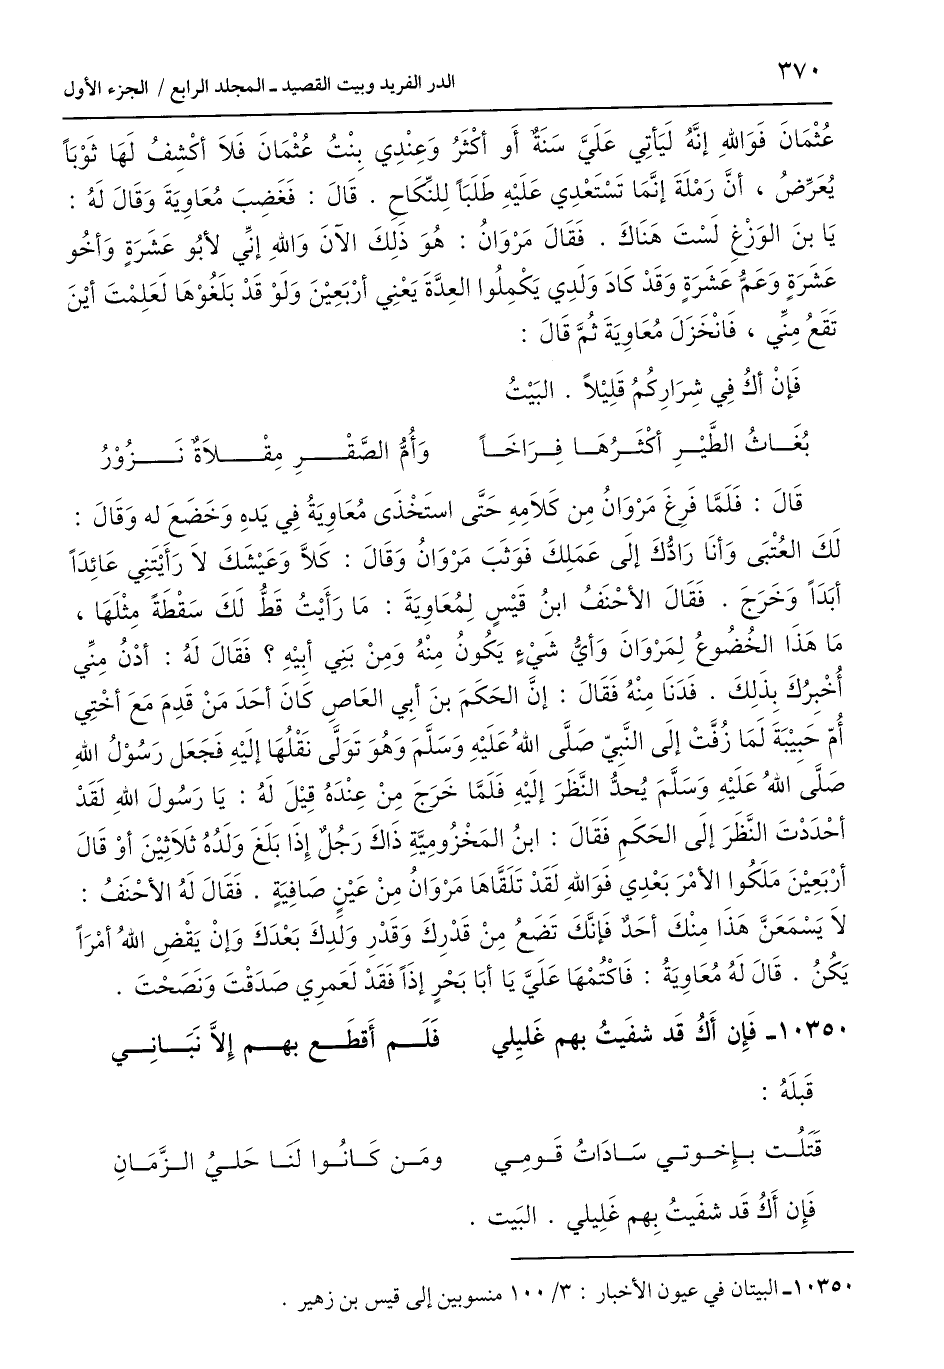 ٣٧٠
الدر الفريد وبيت القصيد ـ المجلد الرابع / الجزء الأول
عُثْمَانَ فَوَاللهِ إِنَّهُ لَيَأتِي عَلَيَّ سَنَةٌ أَو أكْثَرُ وَعِنْدِي بِنْتُ عُثْمَانَ فَلاَ أكْشِفُ لَهَا ثَوْبَاً
يُعَرِّضُ ، أنَّ رَمْلَةَ إنَّمَا تَسْتَعْدِي عَلَيْهِ طَلَبَاً لِلنِّكَاحِ . قَالَ : فَغَضِبَ مُعَاوِيَةَ وَقَالَ لَهُ :
يَا بنَ الوَزْغِ لَسْتَ هَنَاكَ . فَقَالَ مَرْوَانُ : هُوَ ذَلِكَ الآنَ وَاللهِ إنِّي لأبُو عَشَرَةٍ وَأخُو
عَشَرَةٍ وَعَمُّ عَشَرَةٍ وَقَدْ كَادَ وَلَدِي يَكْمِلُوا العِدَّةَ يَعْنِي أرْبَعِيْنَ وَلَوْ قَدْ بَلَغُوْهَا لَعَلِمْتَ أيْنَ
تَقَعُ مِنِّي ، فَانْخَزَلَ مُعَاوِيَةَ ثُمَّ قَالَ :
فَإنْ أكُ فِي شِرَارِكُمُ قَلِيْلاً . البَيْتُ
بُغَـاثُ الطَّيْـرِ أكْثَـرُهَـا فِـرَاخَـاً وَأُمُّ الصَّقْـرِ مِقْـلاَةٌ نَـزُوْرُ
قَالَ : فَلَمَّا فَرِغَ مَرْوَانُ مِن كَلاَمِهِ حَتَّى استَخْذَى مُعَاوِيَةُ فِي يَدِهِ وَخَضَعَ له وَقَالَ :
لَكَ العُتْبَى وَأنَا رَادُّكَ إلَى عَمَلِكَ فَوَثَبَ مَرْوَانُ وَقَالَ : كَلاَّ وَعَيْشَكَ لاَ رَأيْتَنِي عَائِدَاً
أبَدَاً وَخَرَجَ . فَقَالَ الأحْنَفُ ابنُ قَيْسٍ لِمُعَاوِيَةَ : مَا رَأيْتُ قَطُّ لَكَ سَقْطَةً مِثْلَهَا ،
مَا هَذَا الخُضُوعُ لِمَرْوَانَ وَأيُّ شَيْءٍ يَكُونُ مِنْهُ وَمِنْ بَنِي أبِيْهِ ؟ فَقَالَ لَهُ : أدْنُ مِنِّي
أُخْبِرُكَ بِذَلِكَ . فَدَنَا مِنْهُ فَقَالَ : إنَّ الحَكَمَ بنَ أبِي العَاصِ كَانَ أحَدَ مَنْ قَدِمَ مَعَ أخْتِي
أُمّ حَبِيْبَةَ لَمَا زُفَّتْ إلَى النَّبِيّ صَلَّى اللهُ عَلَيْهِ وَسَلَّمَ وَهُوَ تَوَلَّى نَقْلُهَا إلَيْهِ فَجَعَل رَسُوْلُ اللهِ
صَلَّى اللهُ عَلَيْهِ وَسَلَّمَ يُحِدُّ النَّظَرَ إلَيْهِ فَلَمَّا خَرَجَ مِنْ عِنْدَهُ قِيْلَ لَهُ : يَا رَسُولَ اللهِ لَقَدْ
أحْدَدْتَ النَّظَرَ إلَى الحَكَمِ فَقَالَ : ابنُ المَخْزُومِيَّةِ ذَاكَ رَجُلٌ إذَا بَلَغَ وَلَدُهُ ثَلاَثِيْنَ أوْ قَالَ
أرْبَعِيْنَ مَلَكُوا الأمْرَ بَعْدِي فَوَاللهِ لَقَدْ تَلَقَّاهَا مَرْوَانُ مِنْ عَيْنٍ صَافِيَةٍ . فَقَالَ لَهُ الأحْنَفُ :
لاَ يَسْمَعَنَّ هَذَا مِنْكَ أحَدٌ فَإنَّكَ تَضَعُ مِنْ قَدْرِكَ وَقَدْرِ وَلَدِكَ بَعْدَكَ وَإنْ يَقْضِ اللهُ أمْرَاً
يَكُنُ . قَالَ لَهُ مُعَاوِيَةُ : فَاكْتُمْهَا عَلَيَّ يَا أبَا بَحْرٍ إذَاً فَقَدْ لَعَمرِي صَدَقْتَ وَنَصَحْتَ .
١٠٣٥٠ـ فَإِن أَكُ قَد شفَيتُ بهم غَلِيلِي فَلَـم أَقطَـع بهـم إلاَّ بَنَـانِـي
قَبلَهُ :
قَتَلُـت بـإخـوتـي سَـادَاتُ قَـومِـي ومَـن كَـانُـوا لَنَـا حَلـيُ الـزَّمَـانِ
فَإِن أَكُ قَد شفَيتُ بِهم غَلِيلي . البَيت .
١٠٣٥٠ـ البيتان في عيون الأخبار : ٣/ ١٠٠ منسوبين إلى قيس بن زهير .